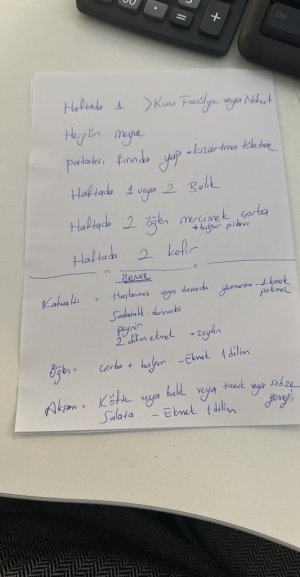 Haftada 1 > Kuru Fasülye veya Nohut
Hergün meyve
patatesi fırında yap • kızartma tüketme
Haftada 1 veya 2 Balık
Haftada 2 öğün mercimek çorba
+ bulgur pilavı
Haftada 2 kefir
Örnek
Kahvaltı = Haşlanmış veya tavada yumurta - 1 kaşık
pekmez
Salatalık - domates
peynir
2 dilim ekmek • zeytin
Öğlen = Çorba + bulgur - Ekmek 1 dilim
Akşam = Köfte veya balık veya tavuk veya sebze
yemeği
Salata - Ekmek 1 dilim